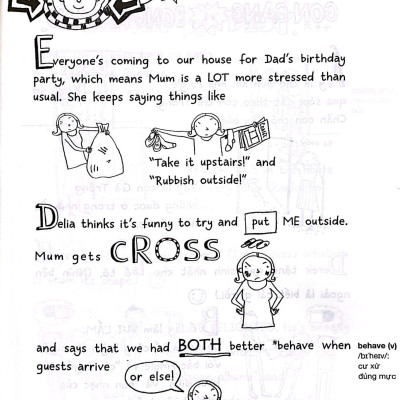 Everyone's coming to our house for Dad's birthday
party, which means Mum is a LOT more stressed than
usual. She keeps saying things like
"Take it upstairs!" and
"Rubbish outside!"
Delia thinks it's funny to try and put ME outside.
Mum gets CROSS
and says that we had BOTH better *behave when
guests arrive
or else!
behave (v)
/bɪˈheɪv/:
cư xử
đúng mực